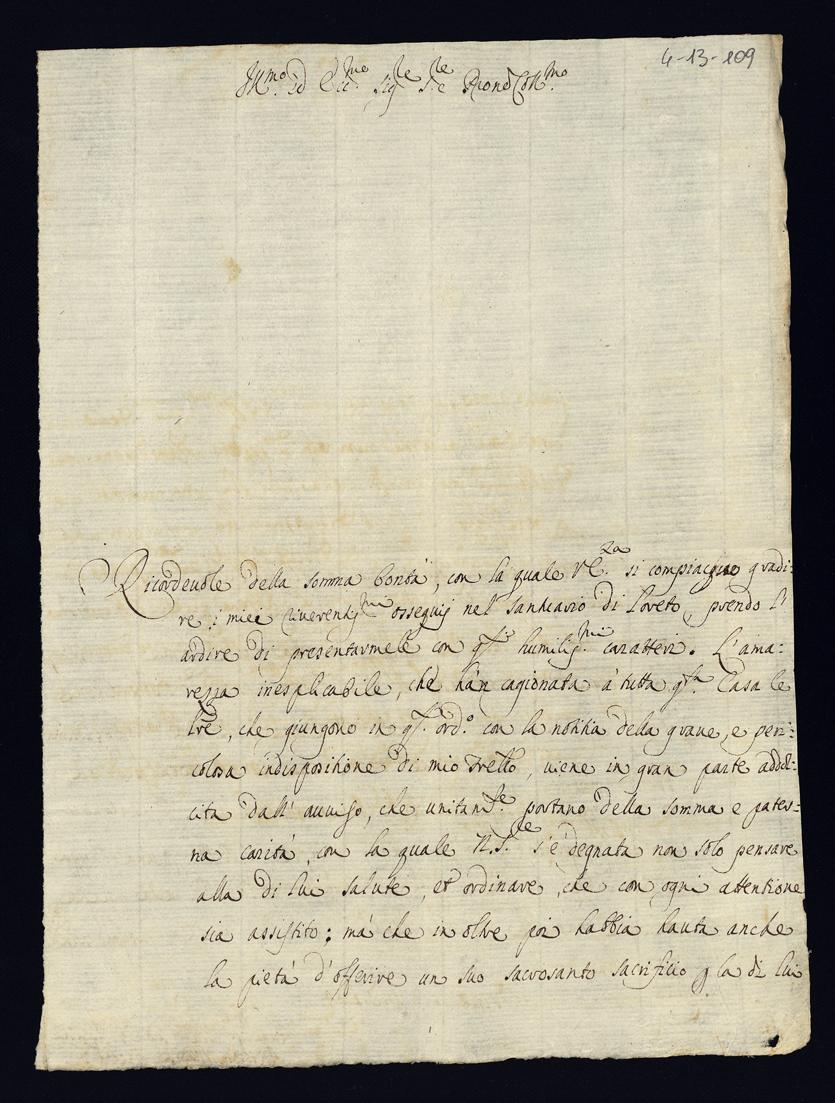 4-13-109
Ill.mo ed Ecc.mo Sig.re Sig.re e Pron Coll.mo
Ricordeuole della somma bontà, con la quale V.E.za si compiacque gradi:
re i miei riuerentiss.mi ossequij nel santuario di Loreto, prendo l'
ardire di presentarmele con q.sti humiliss.mi caratteri. L'ama:
rezza inesplicabile, che han cagionata à tutta q.sta Casa le
l're, che giungono in q.sto ord.o con la notitia della graue, e peri:
colosa indispositione di mio Fretto, uiene in gran parte addol:
cita dall'auuiso, che unitam.te portano della somma e pater:
na carità, con la quale N.S.re s'è degnata non solo pensare
alla di lui salute, et ordinare, che con ogni attentione
sia assistito; mà che in oltre poi habbia hauta anche
la pietà d'offerire un suo sacrosanto sacrificio p la di lui